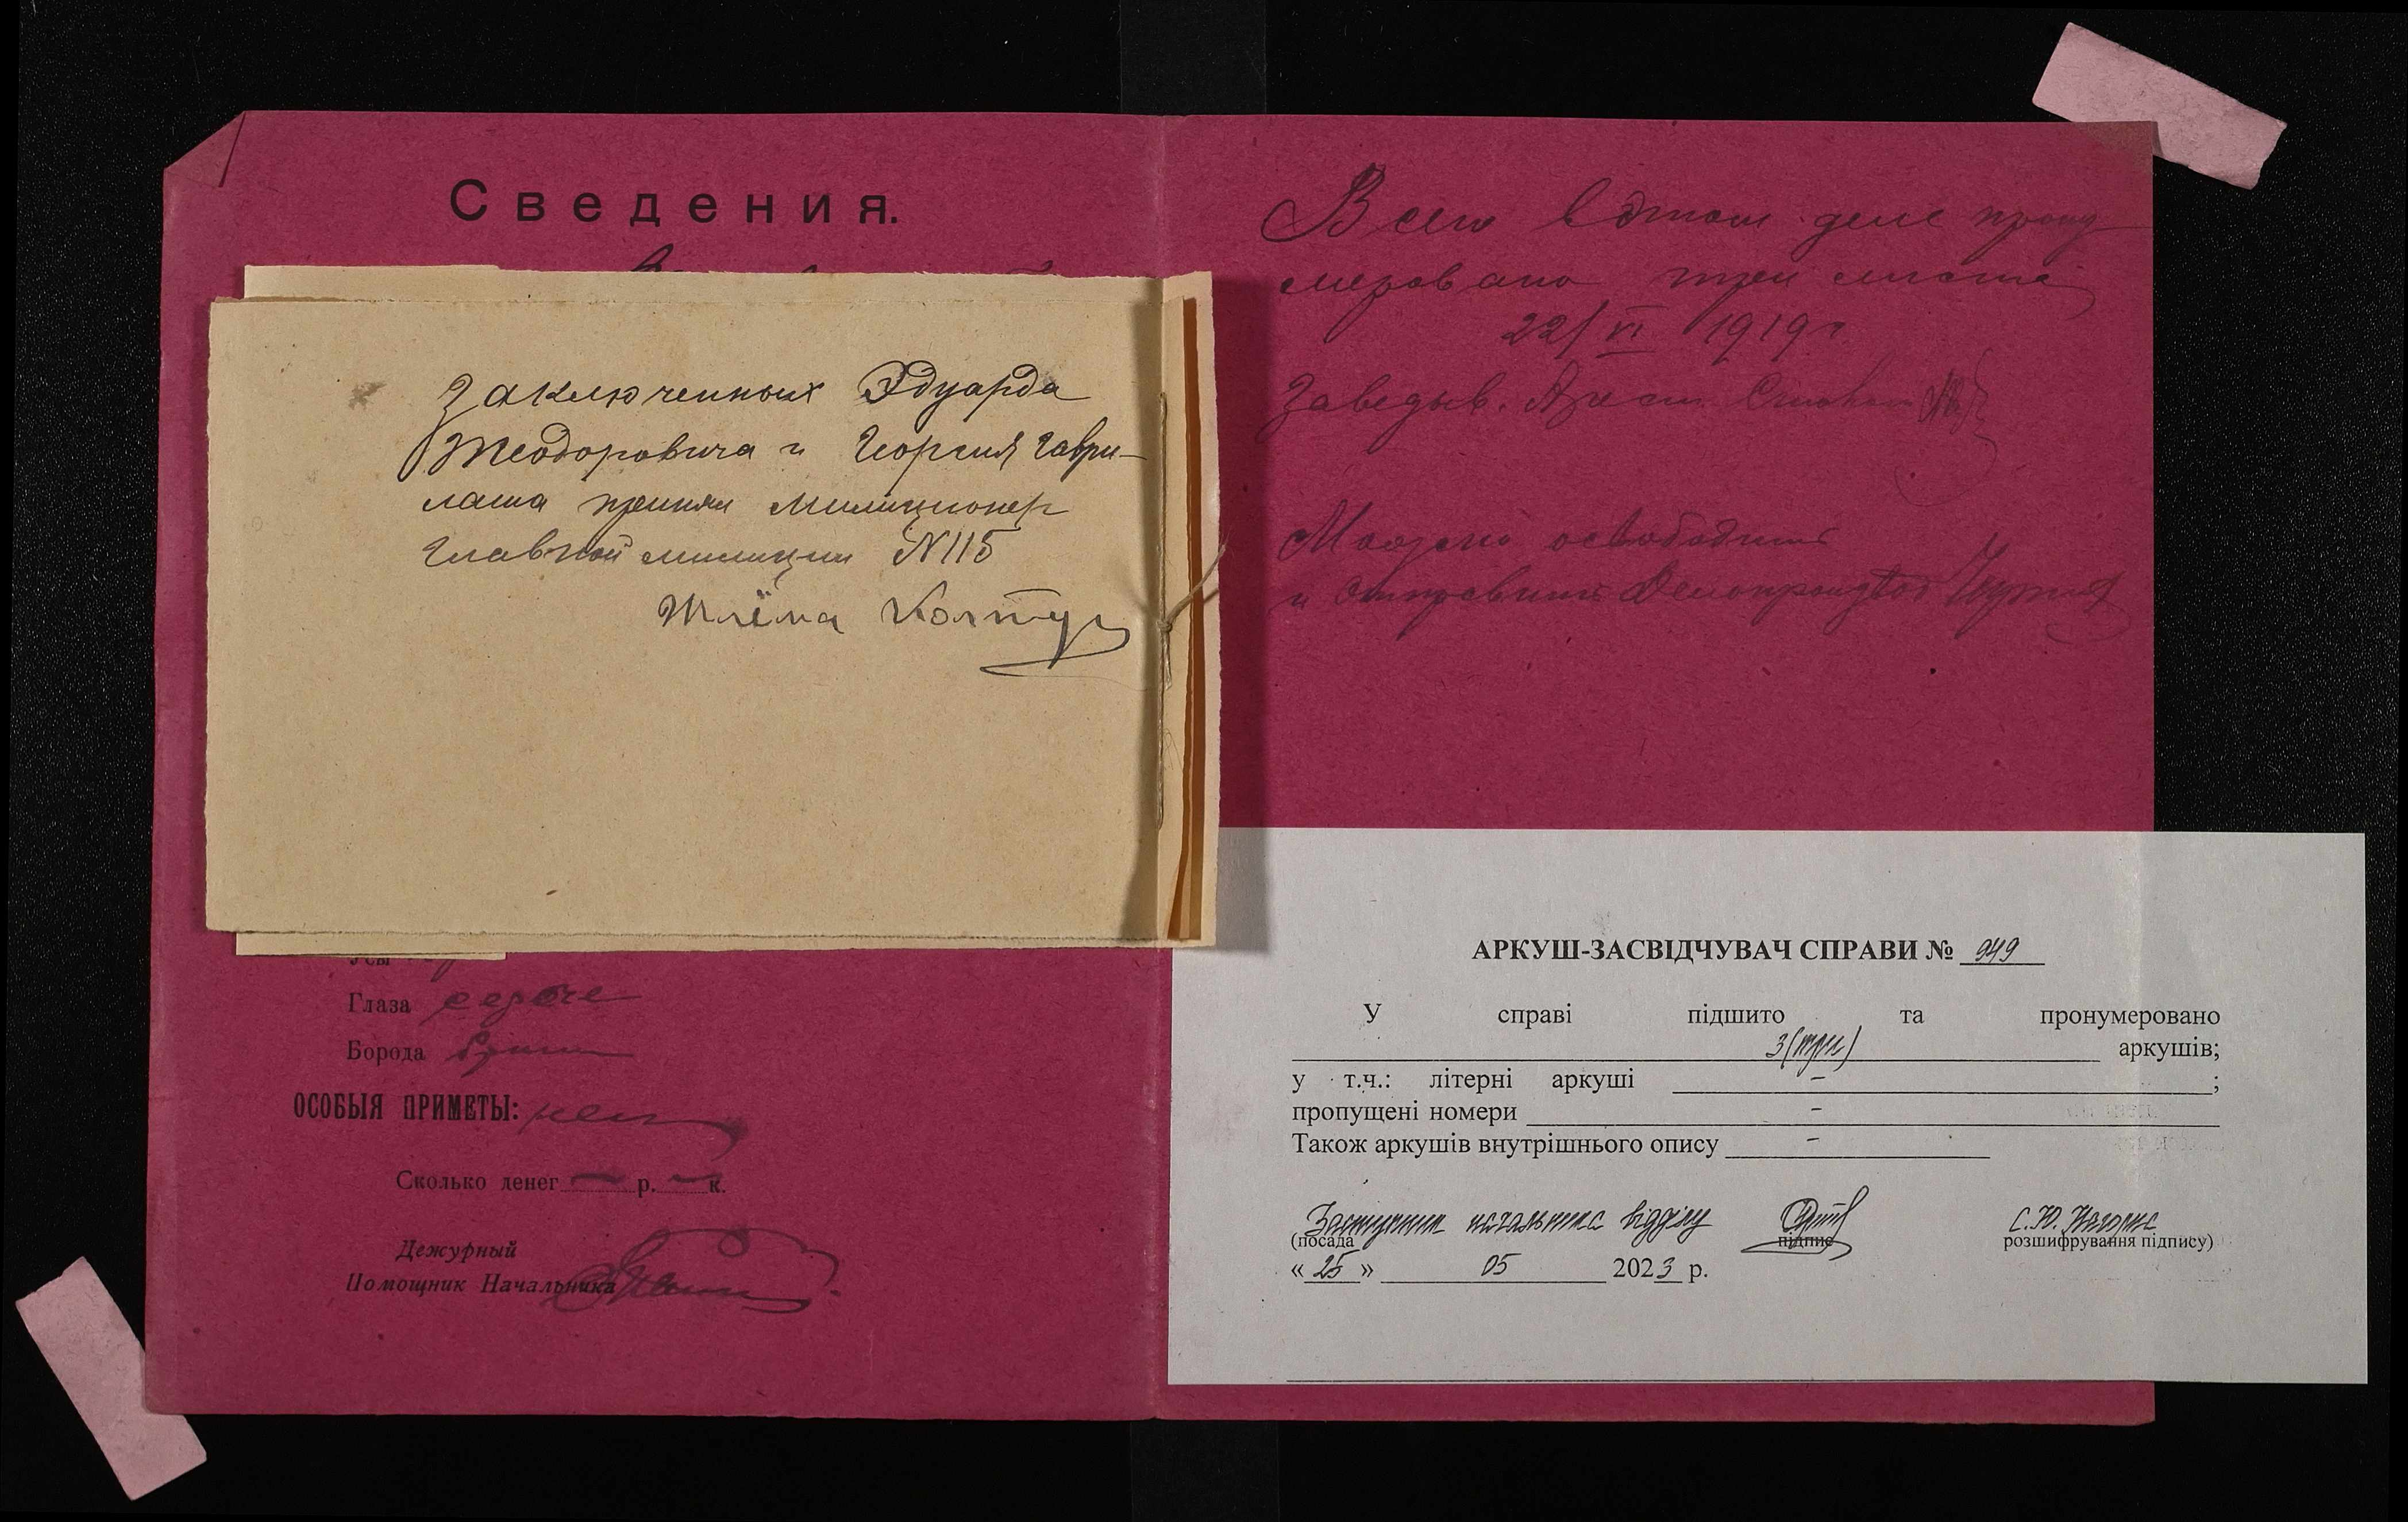 Сведения.
Заключенных Эдуарда
Теодоровича и Георгия Гаври-
лаша принял Милиционер
Главной милиции N115
Шлёма Колтун
Усы
Глаза серые
Борода бритая
ОСОБЫЯ ПРИМЕТЫ: нет
Сколько денег — р. — к.
Дежурный
Помощник Начальника
Всего в этом деле прону
меровано три листа
22/VI 1919 г
Заведыв. Арест.
Можно освободить
и отправить
АРКУШ-ЗАСВІДЧУВАЧ СПРАВИ № 949
У справі підшито та пронумеровано
3(три) аркушів;
у т.ч.: літерні аркуші – ;
пропущені номери –
Також аркушів внутрішнього опису –
Заступник начальника відділу
(посада підпис розшифрування підпису)
« 25 » 05 2023 р.